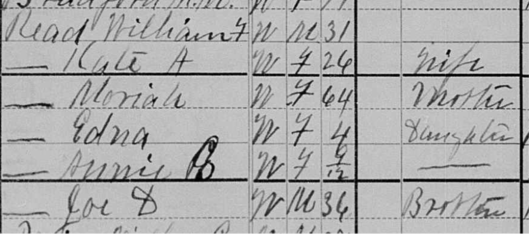 Read William F W M 31
— Kate A W F 26 Wife
— Moriah W F 64 Mother
— Edna W F 4 Daughter
— Annie B W F 9/12 —
— Joe D W M 36 Brother